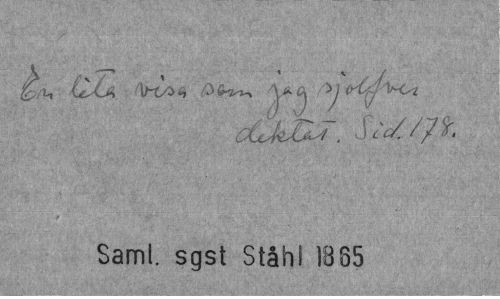 En lita visa som jag sjolfver
diktat. Sid. 178.
Saml. sgst Ståhl 1865